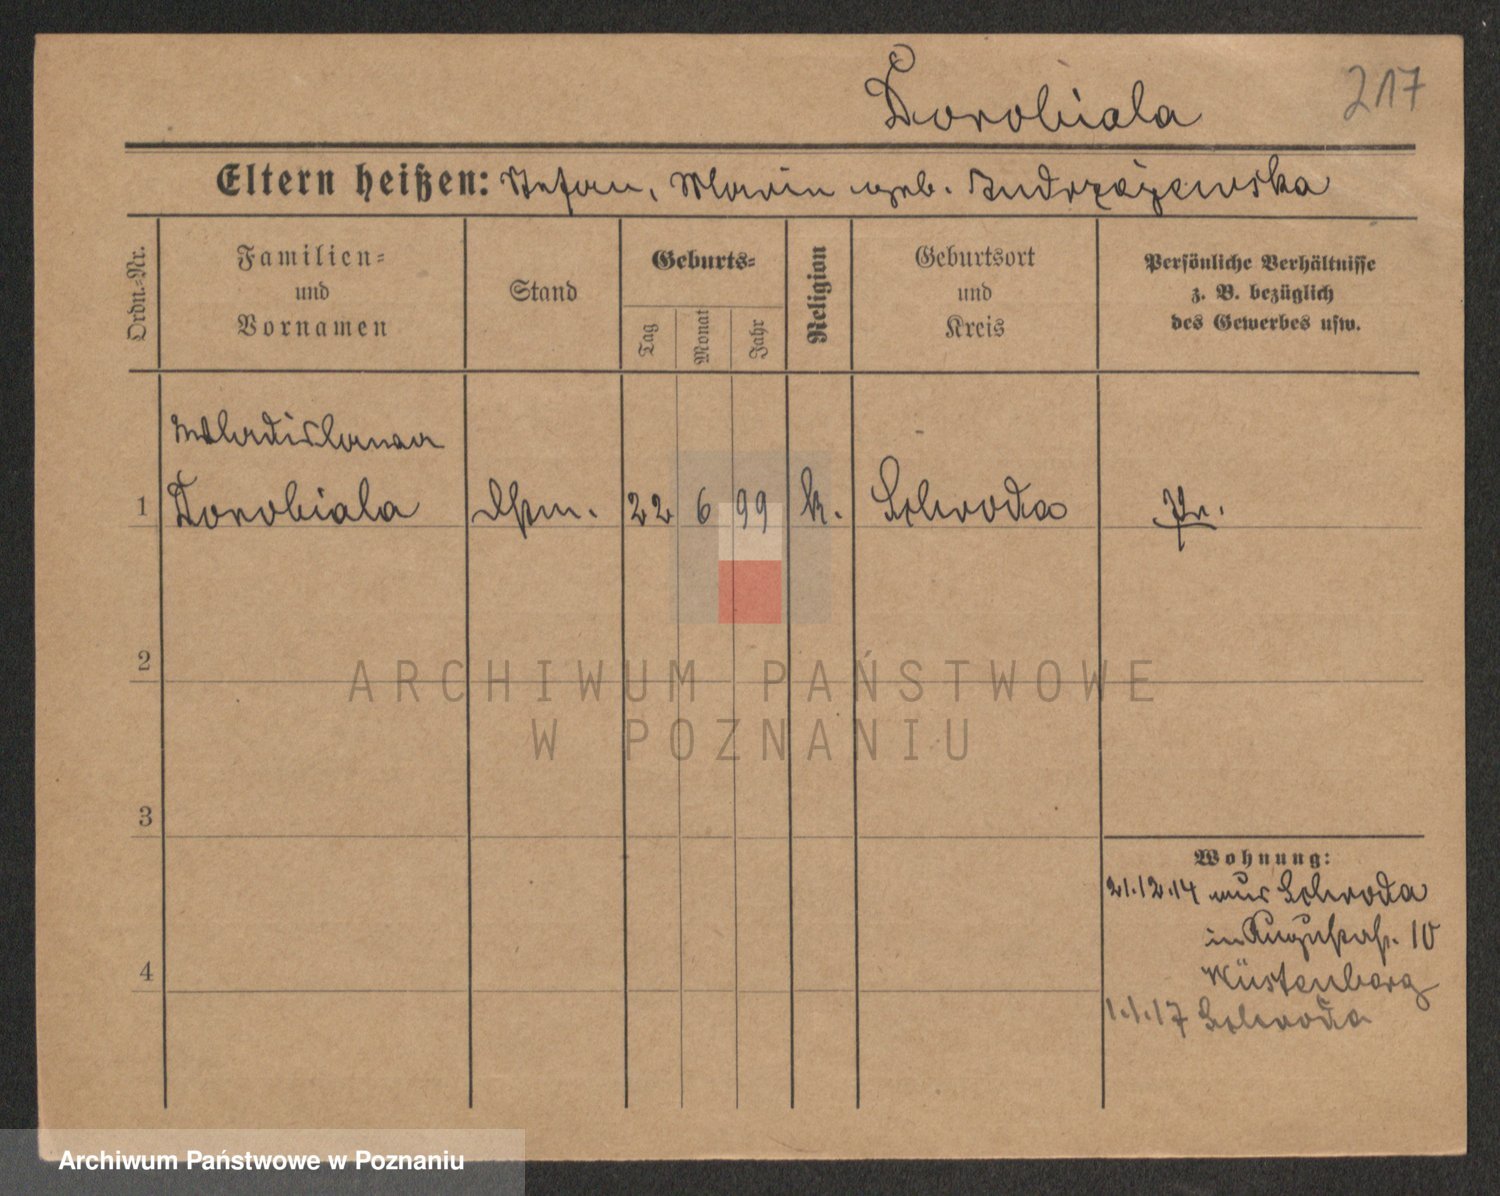 Dorobiala
217
Eltern heißen: Stefan, Marie geb. Andrzejewska
Ordn.-Nr.
Familien-
und
Vornamen
Stand
Geburts-
Tag
Monat
Jahr
Religion
Geburtsort
und
Kreis
Persönliche Verhältnisse
z. B. bezüglich
des Gewerbes usw.
Wladislawa
1 Dorobiala Dstm. 22 6 99 k. Schroda Pr.
2
ARCHIWUM PAŃSTWOWE
W POZNANIU
3
Wohnung:
21.12.14 aus Schroda
in Augustastr. 10
4
Wüstenberg
1.1.17 Schroda
Archiwum Państwowe w Poznaniu